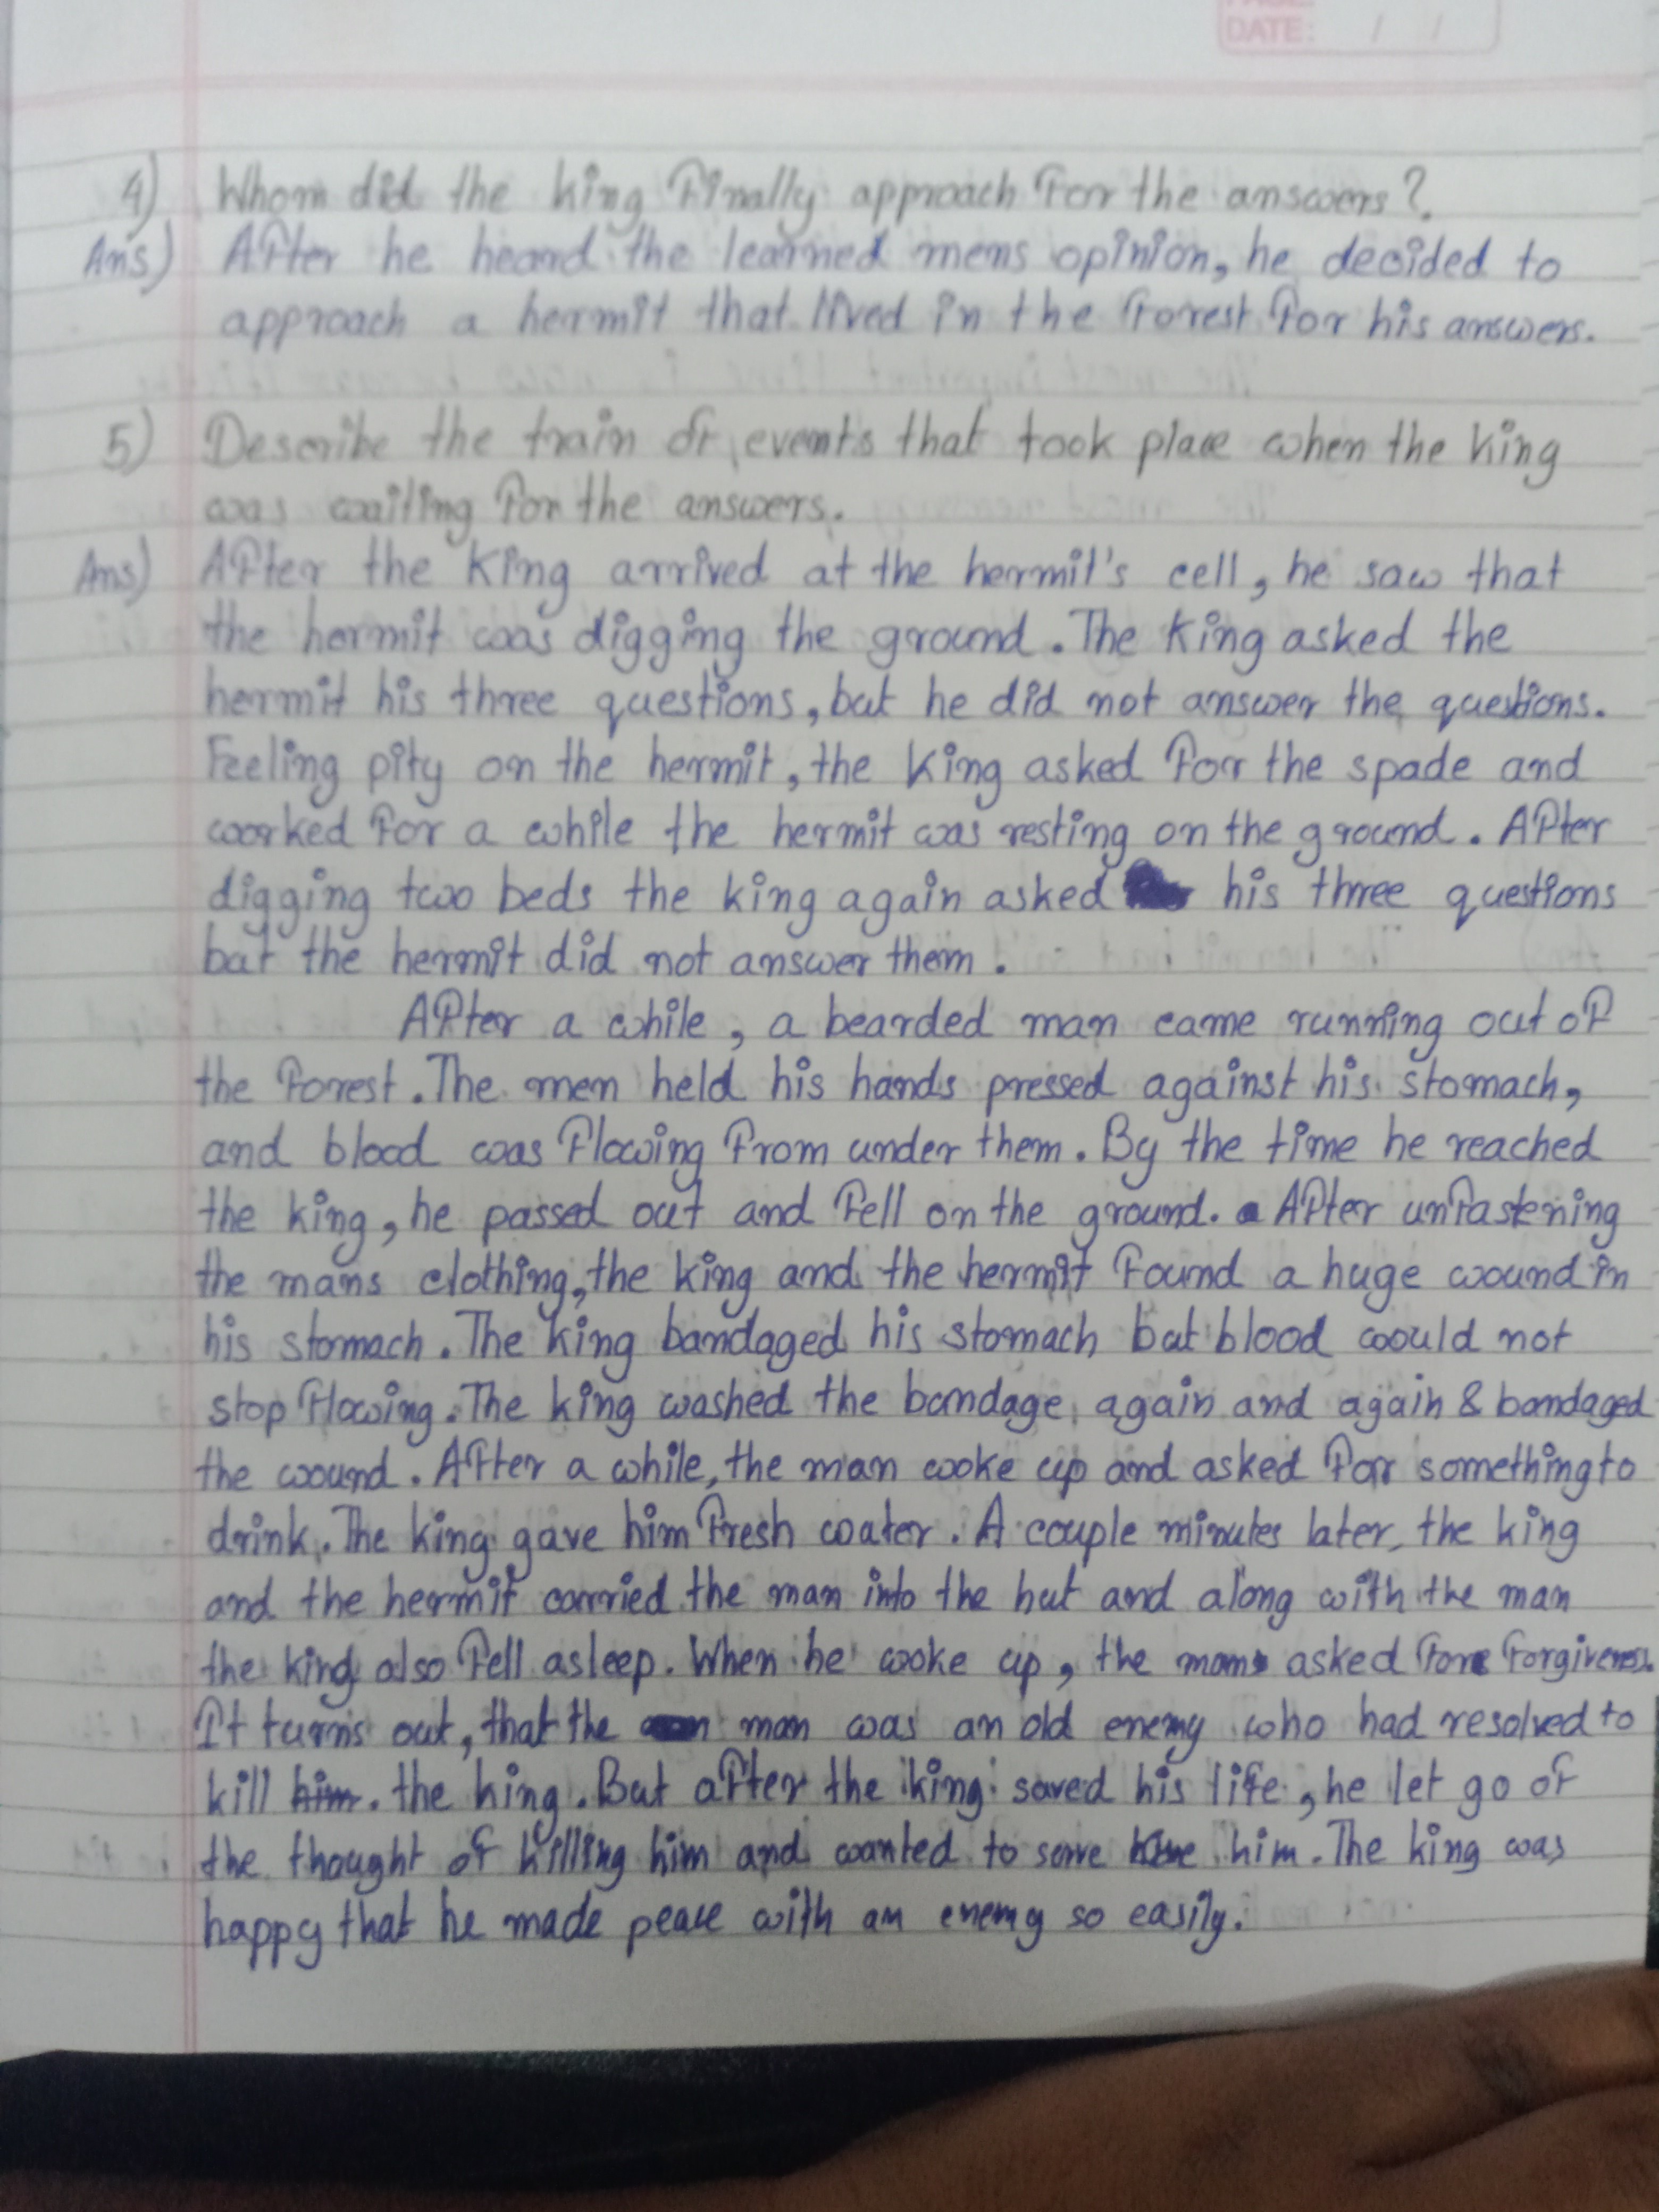 DATE: / /
4) Whom did the king finally approach for the answers?
Ans) After he heard the learned mens opinion, he decided to
approach a hermit that lived in the forest for his answers.
5) Describe the train of events that took place when the King
was waiting for the answers.
Ans) After the King arrived at the hermit's cell, he saw that
the hermit was digging the ground. The King asked the
hermit his three questions, but he did not answer the questions.
Feeling pity on the hermit, the King asked for the spade and
worked for a while the hermit was resting on the ground. After
digging two beds the king again asked his three questions
but the hermit did not answer them.
After a while, a bearded man came running out of
the forest. The men held his hands pressed against his stomach,
and blood was flowing from under them. By the time he reached
the king, he passed out and fell on the ground. After unfastening
the mans clothing, the king and the hermit found a huge wound in
his stomach. The king bandaged his stomach but blood would not
stop flowing. The king washed the bandage again and again & bandaged
the wound. After a while, the man woke up and asked for something to
drink. The king gave him fresh water. A couple minutes later, the king
and the hermit carried the man into the hut and along with the man
the king also fell asleep. When he woke up, the man asked for forgiveness.
It turns out, that the man was an old enemy who had resolved to
kill him. the king. But after the king saved his life, he let go of
the thought of killing him and wanted to serve him. The king was
happy that he made peace with an enemy so easily.